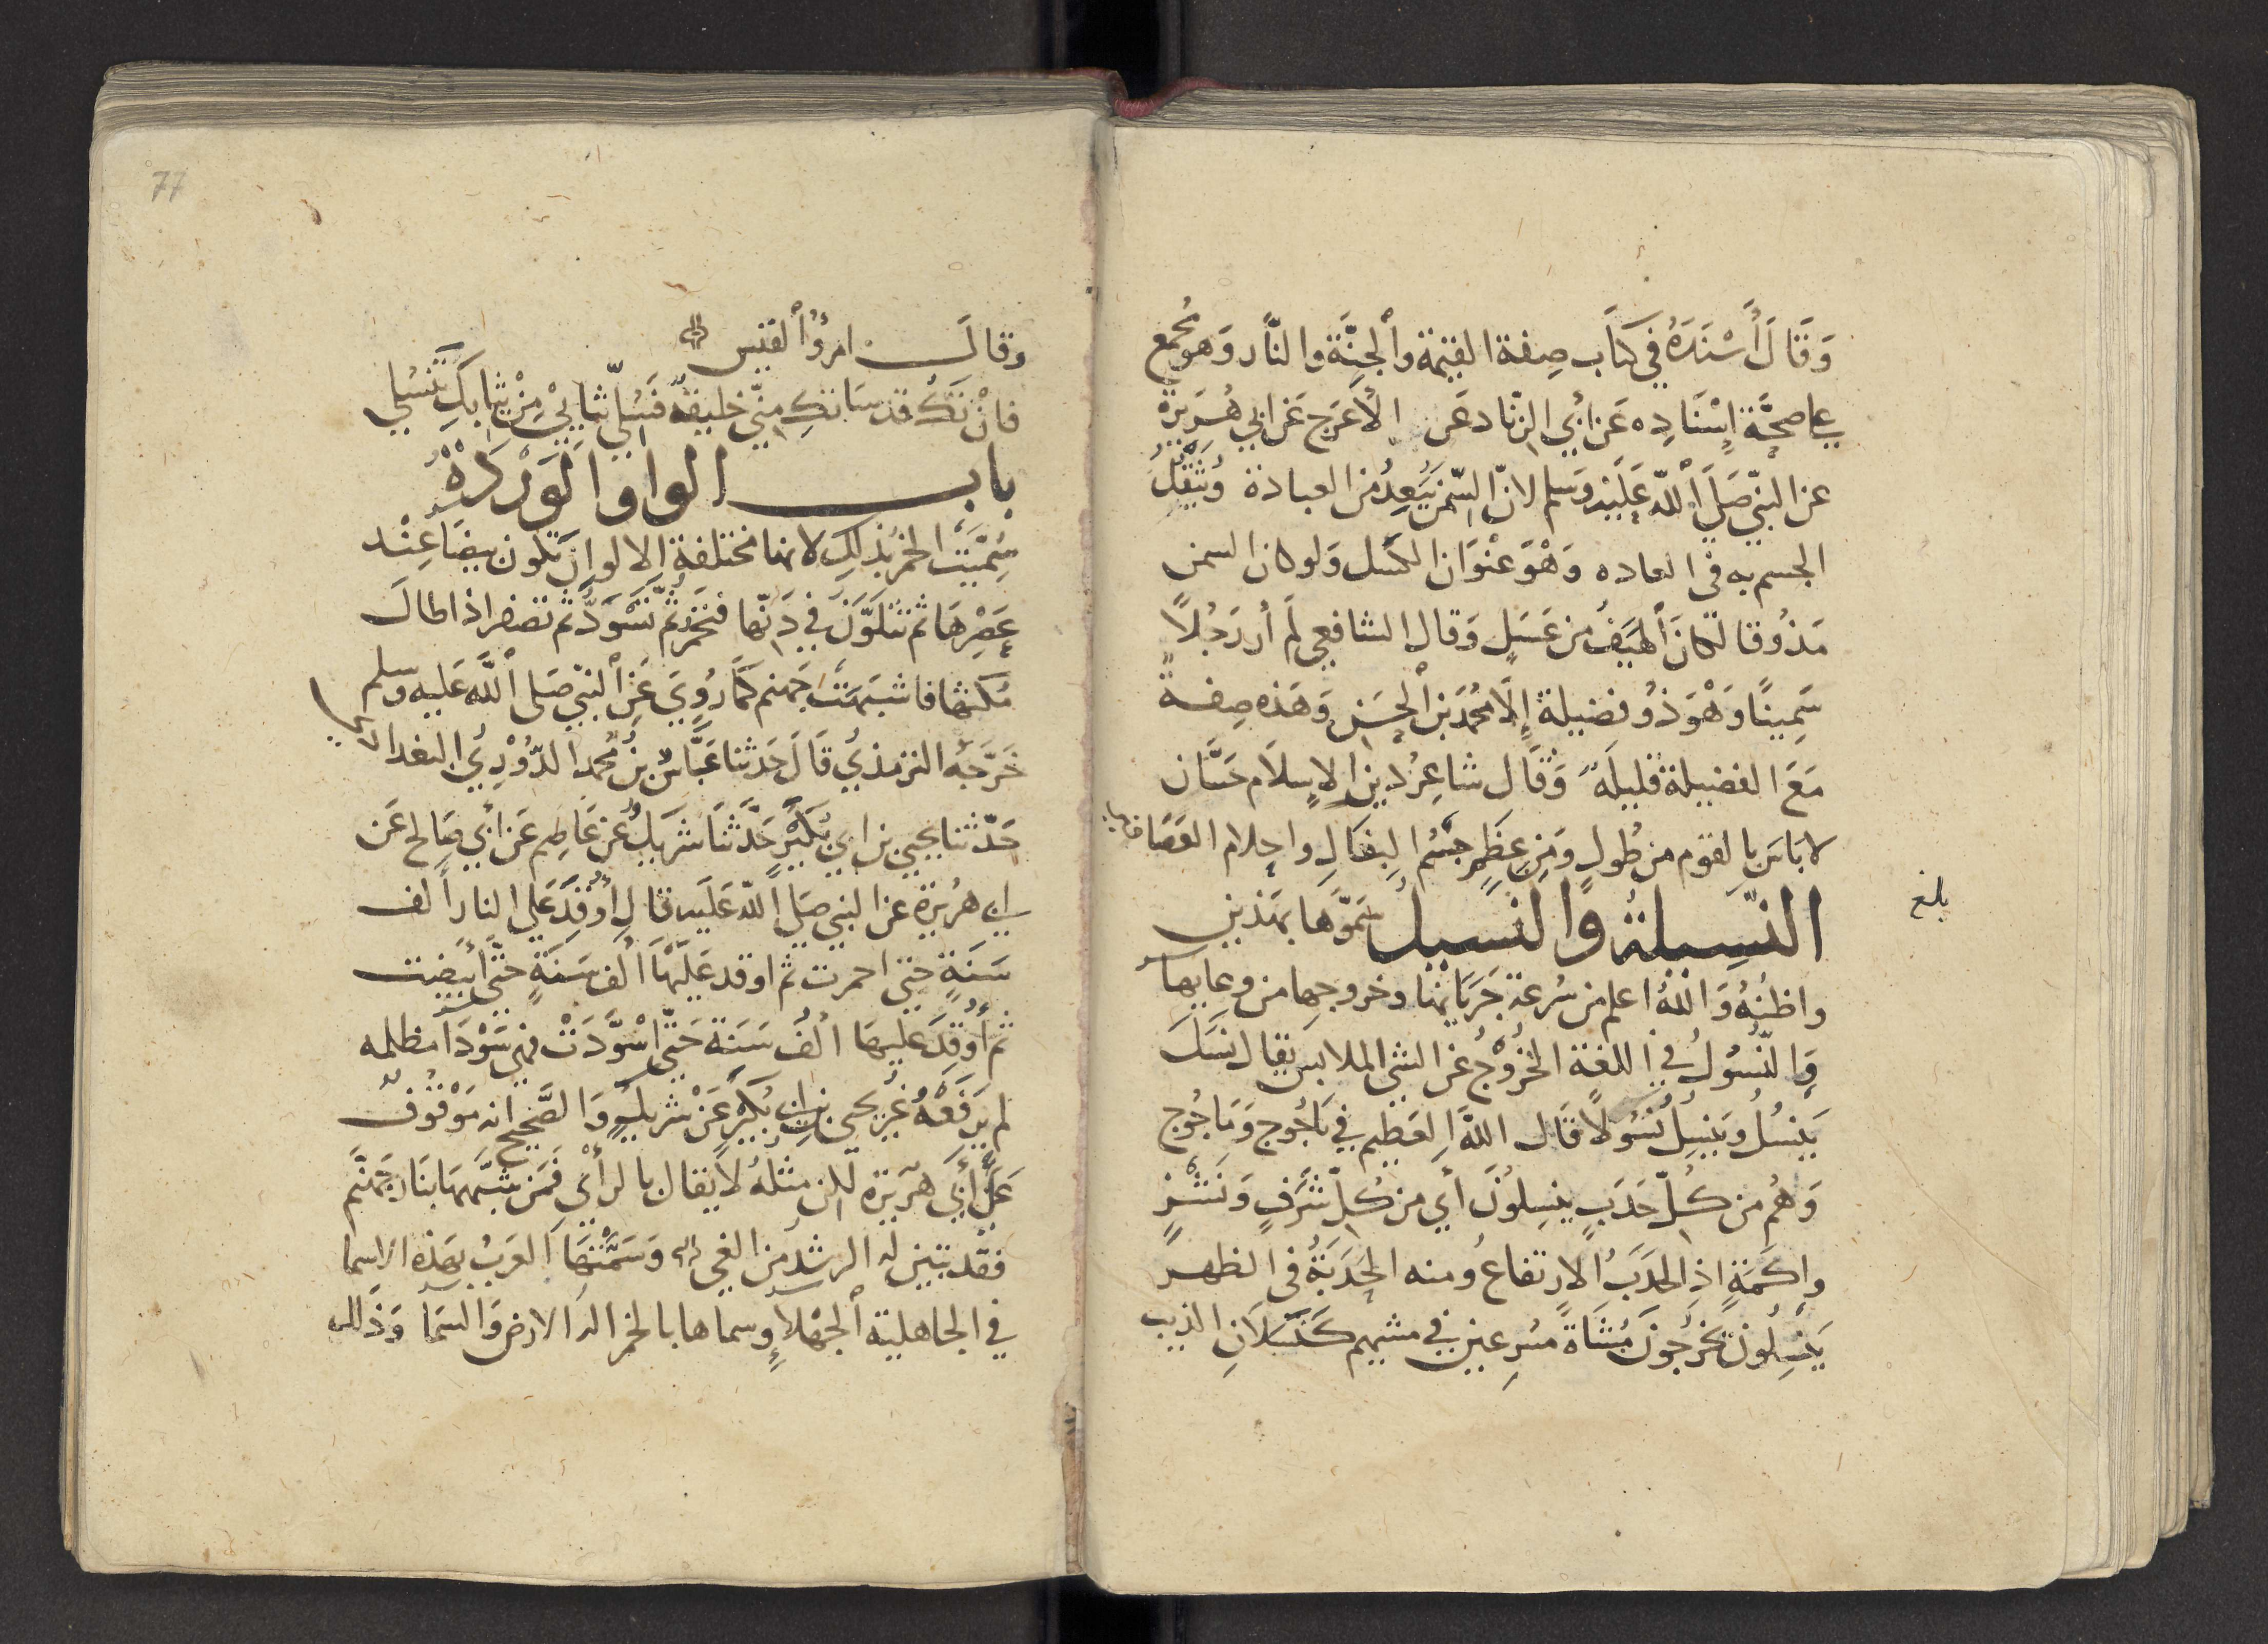 وَقَالَ أَسْنَدَهُ في كتَاب صِفة القيمة وٱلجنَّة والنَّار وَهوَ مجُمع
على صحَّة إِسْنَادِه عَن أبي الزّناد عَن الأعَرج عَن ابي هُرَيرة
عن النبيّ صَلَى ٱللّه عَلَيْه وَسَلم لانّ السّمن يَبعِدُ من العبادة وُيثقلُ
الجسم به في العاده وَهْوَ عنْوَان الكسَل وَلو كان السمن
مَذُوقا لكانَ أطيَبُ من عَسَلٍ وَقال الشافعي لَم أر رَجُلاً
سَمِينًا وَهْوَ ذُو فضيلة إِلَّا محُمّد بن ٱلحسَن وَهَذه صِفة
مَعَ الفضيلة قليلَة وَقَال شاعِرُ دين الاسلَام حَسَّان
لا بَاسَ بِالقوم من طُولٍ وَمن عِظَمٍ جسْمُ البغَالِ واحلام العَصَافير
النَّسِيلةُ وَالنسيلُ سَمّوَّهَا بهَذين
واظنُهُ وَاللهُ اعلم من سُرعة جَرَيَانها وخروجِها من وعايها
وَالنّسُولُ في اللغة الخُرُوْجُ عن الشي الملابس يقال نسَلَ
يَنسُلُ وَينسِلُ نُسُولًا قَال اللهُ العَظيم في يَاجُوج وَمَاجُوج
وَهُم من كُلّ حَدَبٍ ينسِلونَ أي من كُلّ شَرَفٍ وَنشَزٍ
وإكَمَةٍ اذ الحَدَبُ الارتفاعُ ومنه الحَدَبَةُ في الظهر
يَنسِلُونَ يخرُجُونَ مُشَاةً مسُرِعين في مشيهم كَنسَلَانِ الذيب
بلغ
77
وقالَ امرؤُ ٱلقيس
فانْ تكُ قد سَاتكِ منيّ خليقةٌ فسُلّي ثيابيْ مِنْ ثيابكِ تنسُلي
باب الواو الوَرْدَةُ
سُمّيَت الخَمرُ بذلِك لانها مختلفة الالوان تكون بيضَا عِنْد
عَصرِهَا ثم تتلَوَّنَ في دَنّها فتحمَرّ ثمُّ تَسْوَدُّ ثم تصفر اذا طالَ
مكثها فاشبَهَت جَهنم كمَا رُوِيَ عَن ٱلنبيّ صَلى ٱللَّه عَليه وسلم
خَرَّجَهُ الترمذيُ قَالَ حَدثنا عَبَّاسُ بنُ محُمد الدّوُرْيِ البغدادي
حَدّثنا يحيي بن ابي بُكَيْرٍ حَدَّثنَا شَرِيكٌ عن عَاصِم عَن أبي صَالح عَن
ابي هُريرة عن النبي صَلى اللّه عَلَيه قالِ أوُقِدَ عَلي النار الف
سَنةٍ حتي احمرت ثم اوقد عَليَهَا ألف سَنةٍ حَتّي ابيضت
ثم أُوقِدَ عليهَا ألفَ سَنَة حَتّى اسْوَّدَتْ فهي سَوْدَا مظلمه
لم يَرفَعْهُ غيرُ يحيي بن ابي بُكَيْرٍ عَنْ شريكٍ وَالصَّحيح انه مَوْقُوفٌ
عَلى أبي هُرَيرة لكن مثلهُ لا يقال بالرأي فَمن شبَّهَهَا بنار جَهنَّم
فقد تبين له الرشدُ من الغي وَسَمَّتهَا العَرَبُ بهَذه الاسما
في الجاهلية ٱلجَهْلا وسماها بالخمر اله الارض وَالسمَا وَذَلك